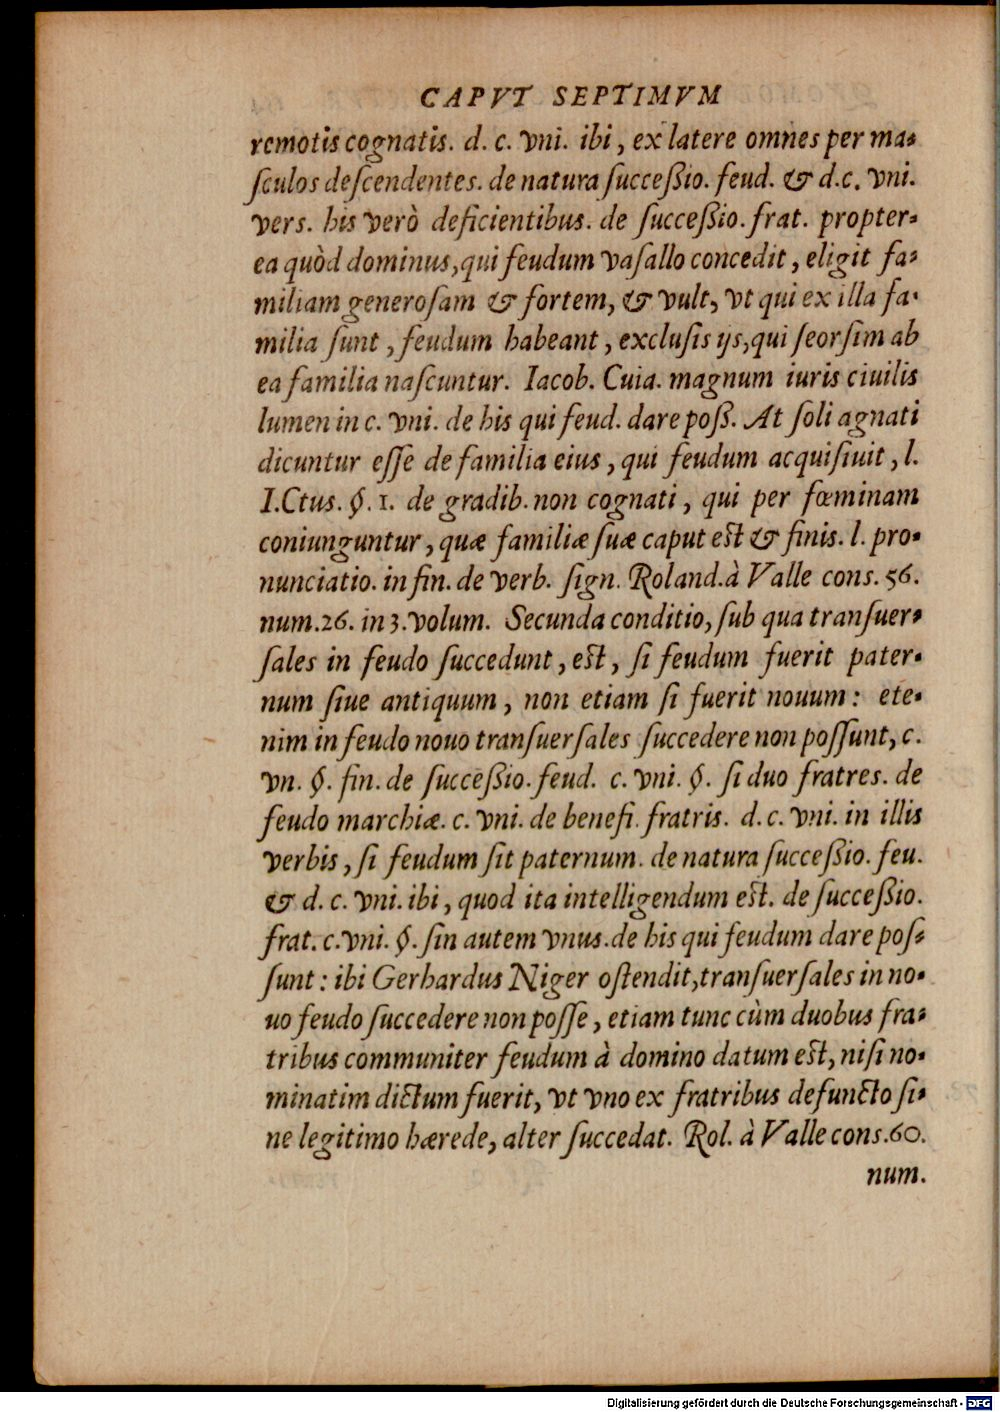 CAPVT SEPTIMVM
remotis cognatis. d. c. vni. ibi, ex latere omnes per ma-
ſculos deſcendentes. de natura ſucceßio. feud. & d.c. vni.
vers. his verò deficientibus. de ſucceßio. frat. propter-
ea quòd dominus, qui feudum vaſallo concedit, eligit fa-
miliam generoſam & fortem, & vult, vt qui ex illa fa-
milia ſunt, feudum habeant, excluſis ijs, qui ſeorſim ab
ea familia naſcuntur. Iacob. Cuia. magnum iuris ciuilis
lumen in c. vni. de his qui feud. dare poß. At ſoli agnati
dicuntur eſſe de familia eius, qui feudum acquiſiuit, l.
I.Ctus. §. 1. de gradib. non cognati, qui per fœminam
coniunguntur, quæ familiæ ſuæ caput est & finis. l. pro-
nunciatio. in fin. de verb. ſign. Roland. à Valle cons. 56.
num. 26. in 3. volum. Secunda conditio, ſub qua tranſuer-
ſales in feudo ſuccedunt, est, ſi feudum fuerit pater-
num ſiue antiquum, non etiam ſi fuerit nouum: ete-
nim in feudo nouo tranſuerſales ſuccedere non poſſunt, c.
vn. §. fin. de ſucceßio. feud. c. vni. §. ſi duo fratres. de
feudo marchiæ. c. vni. de benefi. fratris. d. c. vni. in illis
verbis, ſi feudum ſit paternum. de natura ſucceßio. feu.
& d. c. vni. ibi, quod ita intelligendum est. de ſucceßio.
frat. c. vni. §. ſin autem vnus. de his qui feudum dare poſ-
ſunt: ibi Gerhardus Niger oſtendit, tranſuerſales in no-
uo feudo ſuccedere non poſſe, etiam tunc cùm duobus fra-
tribus communiter feudum à domino datum est, niſi no-
minatim dictum fuerit, vt vno ex fratribus defuncto ſi-
ne legitimo hærede, alter ſuccedat. Rol. à Valle cons. 60.
num.
Digitalisierung gefördert durch die Deutsche Forschungsgemeinschaft - DFG